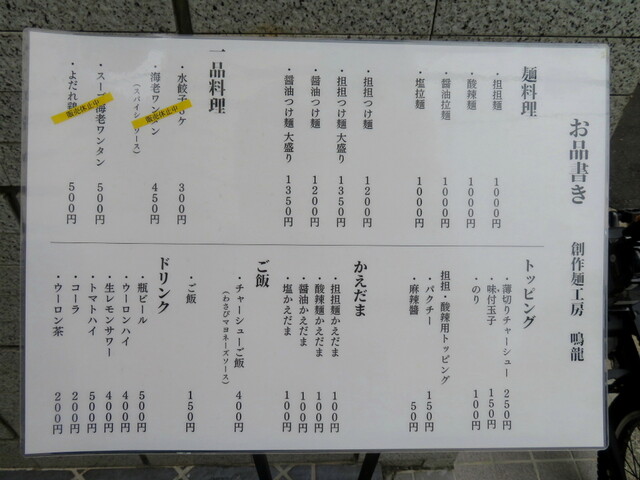 お品書き
創作麺工房 鳴龍
麺料理
・担担麺 1000円
・酸辣麺 1000円
・醤油拉麺 1000円
・塩拉麺 1000円
・担担つけ麺 1200円
・担担つけ麺 大盛り 1350円
・醤油つけ麺 1200円
・醤油つけ麺 大盛り 1350円
一品料理
・水餃子 ケ 300円
・海老ワンタン 450円
(スパイシーソース)
販売休止中
・スープ海老ワンタン 500円
・よだれ鶏 500円
販売休止中
トッピング
・薄切りチャーシュー 250円
・味付玉子 150円
・のり 100円
担担・酸辣用トッピング
・パクチー 150円
・麻辣醤 50円
かえだま
・担担麺かえだま 100円
・酸辣麺かえだま 100円
・醤油かえだま 100円
・塩かえだま 100円
ご飯
・チャーシューご飯 400円
(わさびマヨネーズソース)
・ご飯 150円
ドリンク
・瓶ビール 500円
・ウーロンハイ 400円
・生レモンサワー 400円
・トマトハイ 500円
・コーラ 200円
・ウーロン茶 200円